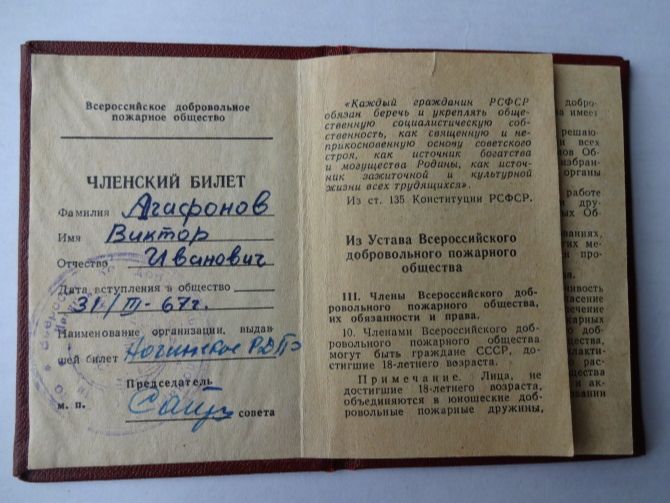 Всероссийское добровольное
пожарное общество
ЧЛЕНСКИЙ БИЛЕТ
Фамилия Агафонов
Имя Виктор
Отчество Иванович
Дата вступления в общество
31/III-67г.
Наименование организации, выдав-
шей билет Ногинское
Председатель
м. п. совета
«Каждый гражданин РСФСР
обязан беречь и укреплять обще-
ственную социалистическую соб-
ственность, как священную и не-
прикосновенную основу советского
строя, как источник богатства
и могущества Родины, как источ-
ник зажиточной и культурной
жизни всех трудящихся».
Из ст. 135 Конституции РСФСР.
Из Устава Всероссийского
добровольного пожарного
общества
III. Члены Всероссийского доб-
ровольного пожарного общества,
их обязанности и права.
10. Членами Всероссийского доб-
ровольного пожарного общества
могут быть граждане СССР, до-
стигшие 18-летнего возраста.
Примечание. Лица, не
достигшие 18-летнего возраста,
объединяются в юношеские доб-
ровольные пожарные дружины,
добро-
имеет
решаю-
всех
Об-
избран-
органы
работе
и дру-
Об-
ме-
про-